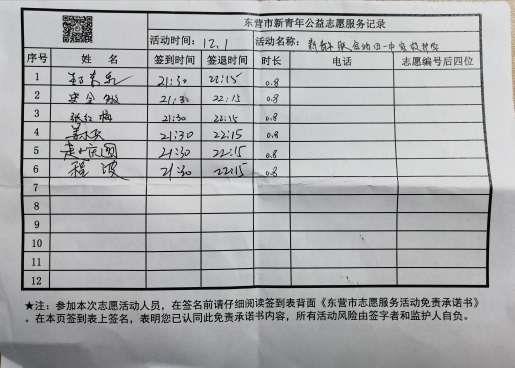 东营市新青年公益志愿服务记录
活动时间： 12.1 活动名称：
序号 姓 名 签到时间 签退时间 时长 电话 志愿编号后四位
1 21:30 22:15 0.8
2 21:30 22:15 0.8
3 张红梅 21:30 22:15 0.8
4 21:30 22:15 0.8
5 21:30 22:15 0.8
6 程波 21:30 22:15 0.8
7
8
9
10
11
12
★注：参加本次志愿活动人员，在签名前请仔细阅读签到表背面《东营市志愿服务活动免责承诺书》
。在本页签到表上签名，表明您已认同此免责承诺书内容，所有活动风险由签字者和监护人自负。